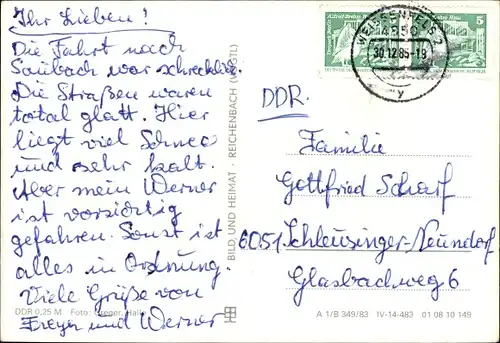 Ihr Lieben!
Die Fahrt nach
Saubach war schrecklich.
Die Straßen waren
total glatt. Hier
liegt viel Schnee
und sehr kalt.
Aber mein Werner
ist vorsichtig
gefahren. Sonst ist
alles in Ordnung.
Viele Grüße von
und Werner
DDR 0,25 M Foto: Greger, Halle
BILD UND HEIMAT · REICHENBACH (VOGTL)
WEISSENFELS 2
4850
30.12.85-19
y
5
DDR.
Familie
Gottfried Scharf
6051 Schleusinger-Neundorf
Glasbachweg 6
A 1/B 349/83 IV-14-483 01 08 10 149